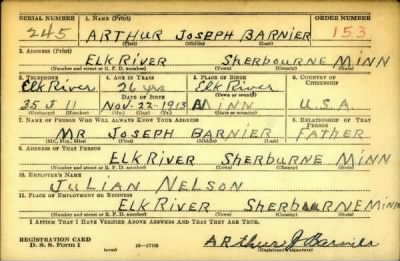 SERIAL NUMBER 1. NAME (Print) ORDER NUMBER
245 ARTHUR JOSEPH BARNIER 153
(First) (Middle) (Last)
2. ADDRESS (Print)
ELK RIVER SHERBOURNE MINN
(Number and street or R. F. D. number) (Town) (County) (State)
3. TELEPHONE 4. AGE IN YEARS 5. PLACE OF BIRTH 6. COUNTRY OF CITIZENSHIP
Elk River 26 yrs Elk River
DATE OF BIRTH (Town or county)
35 J 11 NOV-22-1913 MINN U.S.A.
7. NAME OF PERSON WHO WILL ALWAYS KNOW YOUR ADDRESS 8. RELATIONSHIP OF THAT PERSON
MR JOSEPH BARNIER FATHER
9. ADDRESS OF THAT PERSON
ELK RIVER SHERBURNE MINN
(Number and street or R. F. D. number) (Town) (County) (State)
10. EMPLOYER'S NAME
JULIAN NELSON
11. PLACE OF EMPLOYMENT OR BUSINESS
ELK RIVER SHERBURNE MINN
(Number and street or R. F. D. number) (Town) (County) (State)
I AFFIRM THAT I HAVE VERIFIED ABOVE ANSWERS AND THAT THEY ARE TRUE.
REGISTRATION CARD
D. S. S. Form 1 (over) 16-17105 Arthur J Barnier
(Registrant's signature)